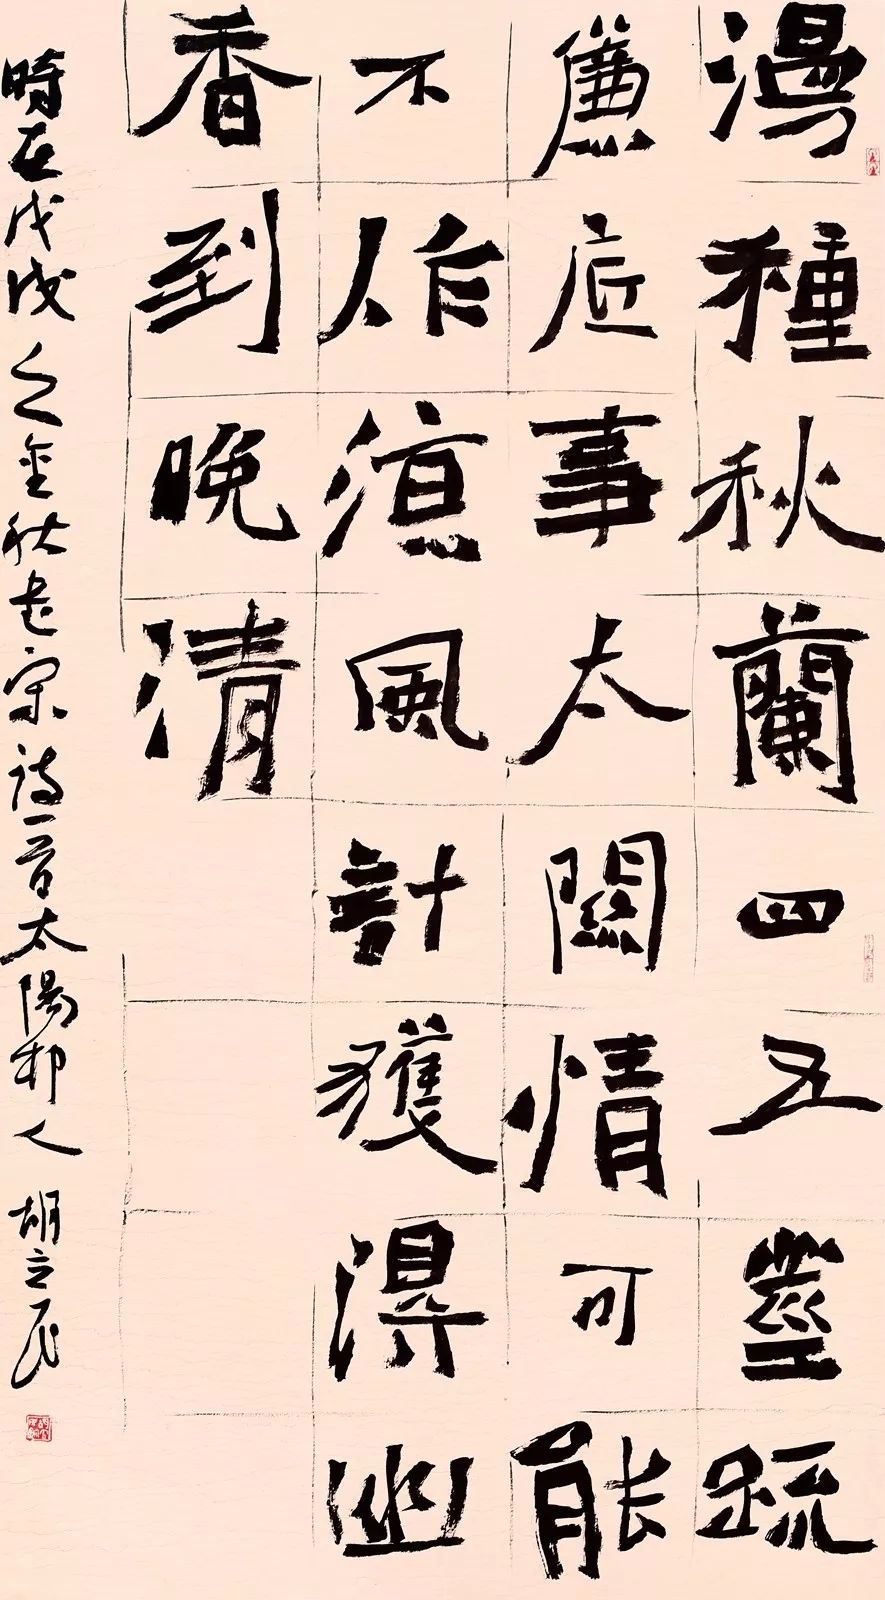 漫種秋蘭四五莖疏
簾底事太關情可能
不作涼風計獲得幽
香到晚清
時在戊戌之金秋書宋詩一首太陽邨人胡立民